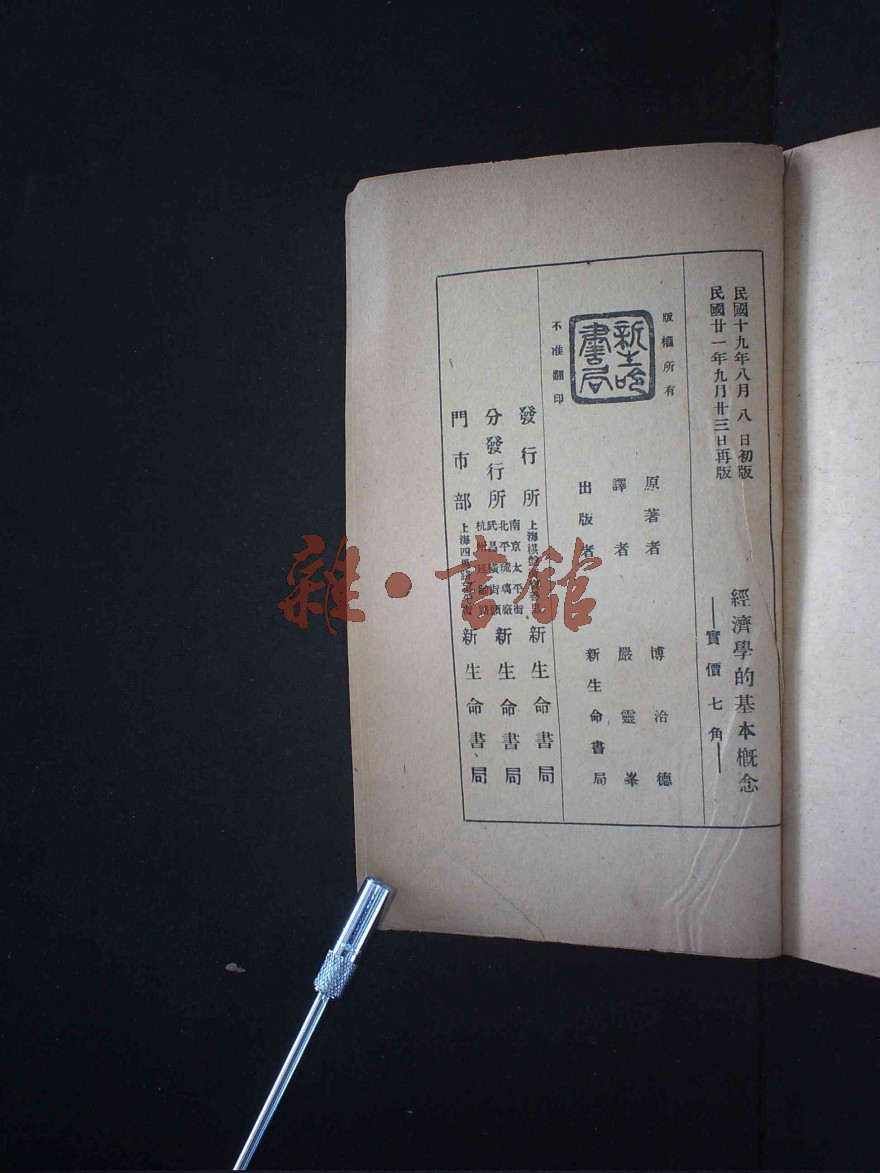 民國十九年八月八日初版
民國廿一年九月廿三日再版
經濟學的基本概念
實價七角
版權所有
新生命書局
不准翻印
原著者 博治德
譯者 嚴靈峯
出版者 新生命書局
發行所 上海棋盤街 新生命書局
分發行所 南京太平街 北平琉璃廠 武昌橫街頭 杭州 新生命書局
門市部 上海四馬路 新生命書局
雜·書館